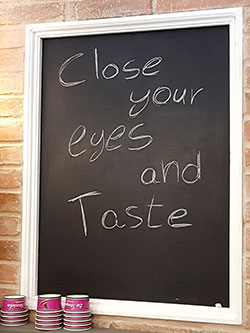 Close
your
eyes
and
Taste